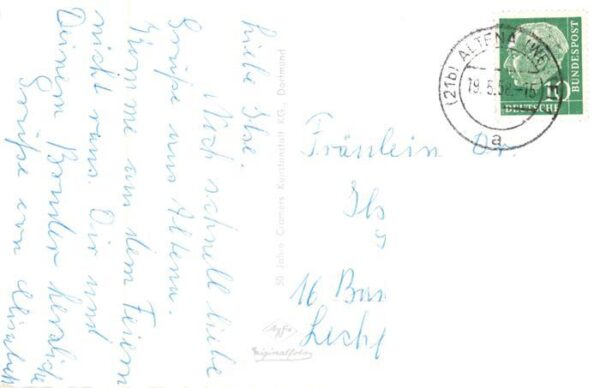 Liebe Ilse.
Noch schnell liebe
Grüße aus Altena.
Komme aus dem Feiern
nicht raus. Dir und
Deinem herzliche
Grüße
50 Jahre Cramers Kunstanstalt KG., Dortmund
Agfa
Originalfoto
(21b) ALTENA
a
10
DEUTSCHE
BUNDESPOST
Fräulein Dr.
Ils
16